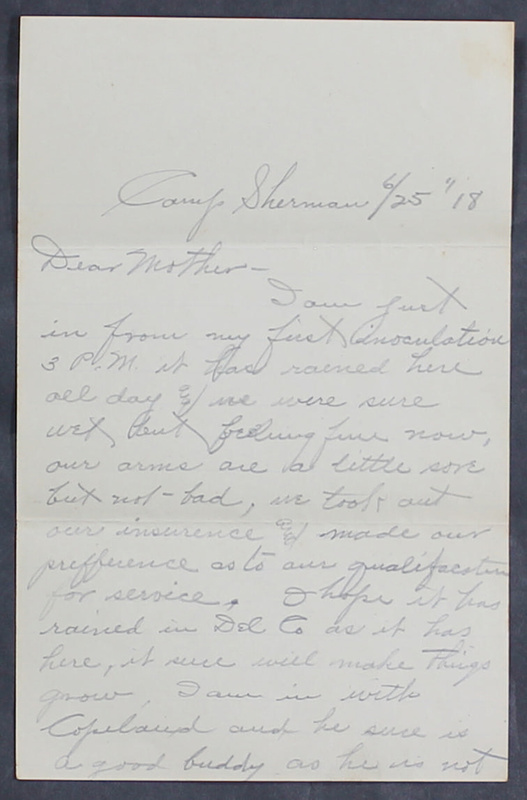 Camp Sherman 6/25 "18
Dear Mother—
I am just
in from my first inoculation
3 P.M. it has rained here
all day & we were sure
wet, but feeling fine now,
our arms are a little sore
but not-bad, we took out
our insurence & made our
prefference as to our qualifacation
for service. I hope it has
rained in Del Co as it has
here, it sure will make things
grow I am in with
Copeland and he sure is
a good buddy as he is not